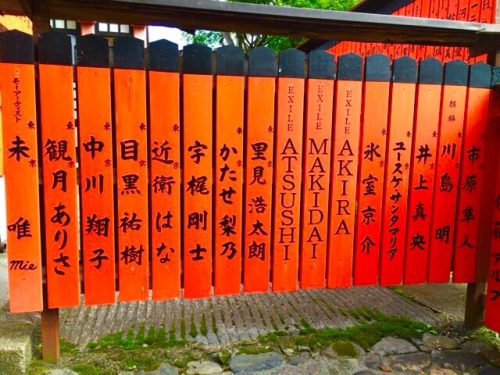 モーアーティスト 未唯 mie
東京 観月ありさ
東京 中川翔子
東京 目黒祐樹
東京 近衛はな
東京 宇梶剛士
東京 かたせ梨乃
東京 里見浩太朗
EXILE ATSUSHI
EXILE MAKIDAI
EXILE AKIRA
東京 氷室京介
東京 ユースケサンタマリア
東京 井上真央
川島明
東京 市原隼人